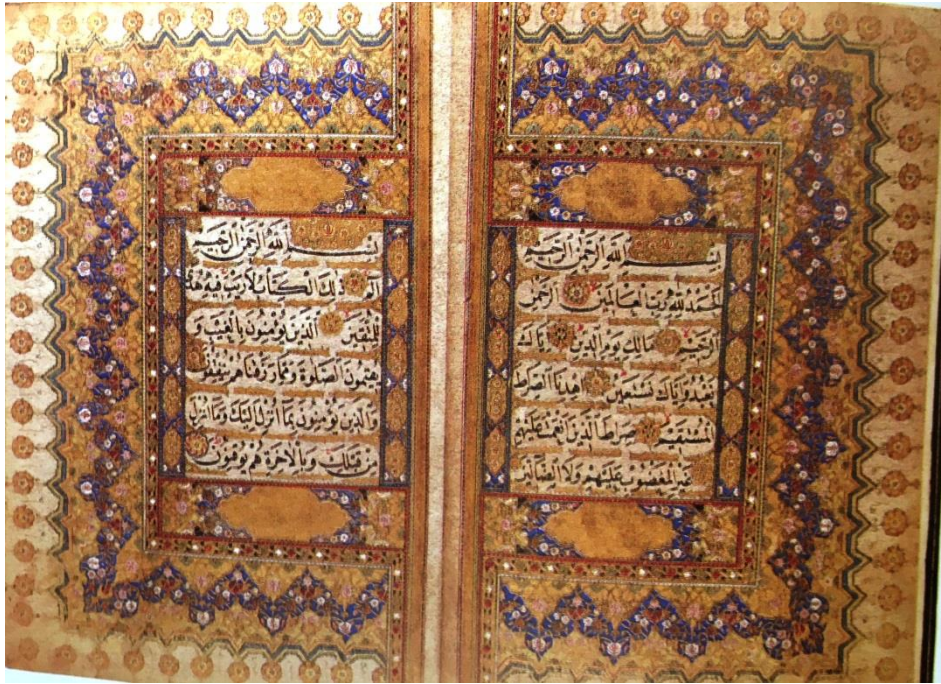 بسم الله الرحمن الرحيم
الحمد لله رب العالمين الرحمن
الرحيم مالك يوم الدين اياك
نعبد واياك نستعين اهدنا الصراط
المستقيم صراط الذين انعمت عليهم
غير المغضوب عليهم ولا الضالين
بسم الله الرحمن الرحيم
الم ذلك الكتاب لا ريب فيه هدى
للمتقين الذين يؤمنون بالغيب و
يقيمون الصلوة ومما رزقناهم ينفقون
والذين يؤمنون بما انزل اليك وما انزل
من قبلك وبالاخرة هم يوقنون